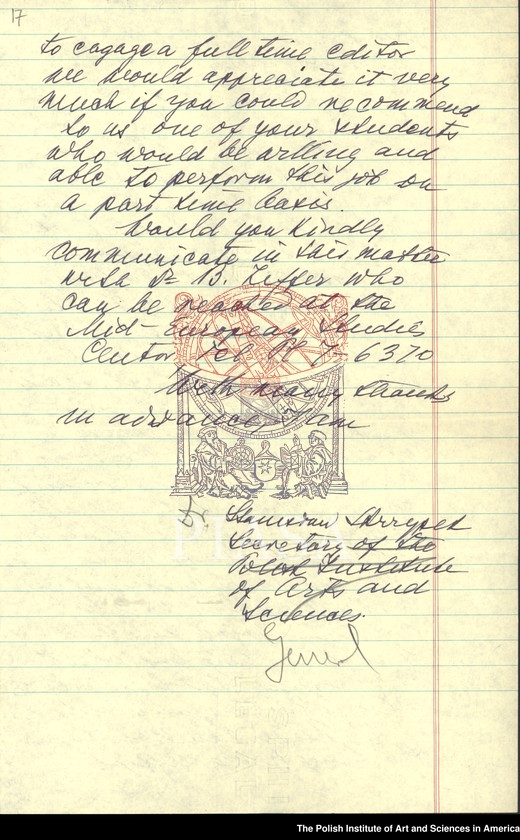 17
to eagage a full time editor
we would appreciate it very
much if you could recommend
to us one of your students
who would be willing and
able to perform this job on
a part time basis.
Would you kindly
communicate in this matter
with Dr B. who
can be reached at the
Mid-European Studies
Center Tel 7-6370
With many thanks
in advance I am
Dr.
Secretary of the
Polish Institute
of Arts and
Sciences.
The Polish Institute of Art and Sciences in America